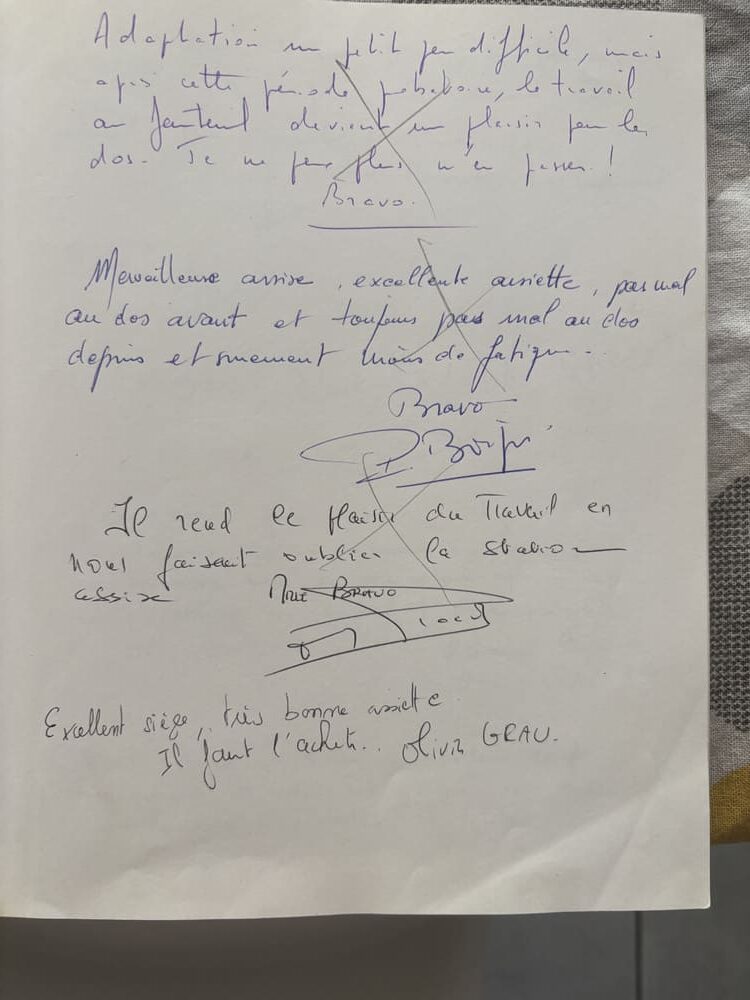 Adaptation un petit peu difficile, mais
après cette période probatoire, le travail
au fauteuil devient un plaisir pour le
dos. Je ne peux plus m'en passer !
Bravo.
Merveilleuse assise, excellente assiette, pas mal
au dos avant et toujours pas mal au dos
depuis et surement moins de fatigue.
Bravo
Il rend le plaisir du Travail en
nous faisant oublier la station
assise BRAVO
Excellent siège, très bonne assiette
Il faut l'acheter.. Olivier GRAU.